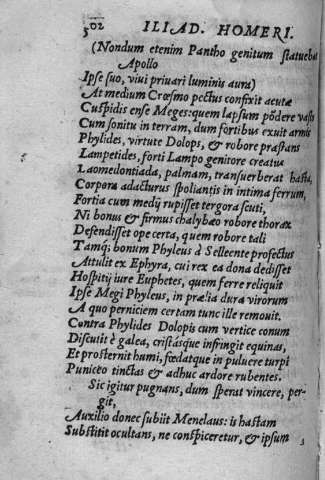 502 ILIAD. HOMERI.
(Nondum etenim Pantho genitum statuebat
Apollo
Ipse suo, vivi privari luminis aura)
At medium Crœsmo pectus confixit acutæ
Cuspidis ense Meges: quem lapsum põdere vasto
Cum sonitu in terram, dum fortibus exuit armis
Phylides, virtute Dolops, & robore præstans
Lampetides, forti Lampo genitore creatus
Laomedontiada, palmam, transuerberat hasta,
Corpora adacturus spoliantis in intima ferrum,
Fortia cum medij rupisset tergora scuti,
Ni bonus & firmus chalybæo robore thorax
Defendisset ope certa, quem robore tali
Tamq; bonum Phyleus à Selleente profectus
Attulit ex Ephyra, cui rex ea dona dedisset
Hospitij iure Euphetes, quem ferre reliquit
Ipse Megi Phyleus, in prælia dura virorum
A quo perniciem certam tunc ille remouit.
Contra Phylides Dolopis cum vertice conum
Discutit è galea, cristasque infringit equinas,
Et prosternit humi, fœdatque in puluere turpi
Puniceo tinctas & adhuc ardore rubentes.
Sic igitur pugnans, dum sperat vincere, per-
git,
Auxilio donec subiit Menelaus: is hastam
Substitit ocultans, ne conspiceretur, & ipsum